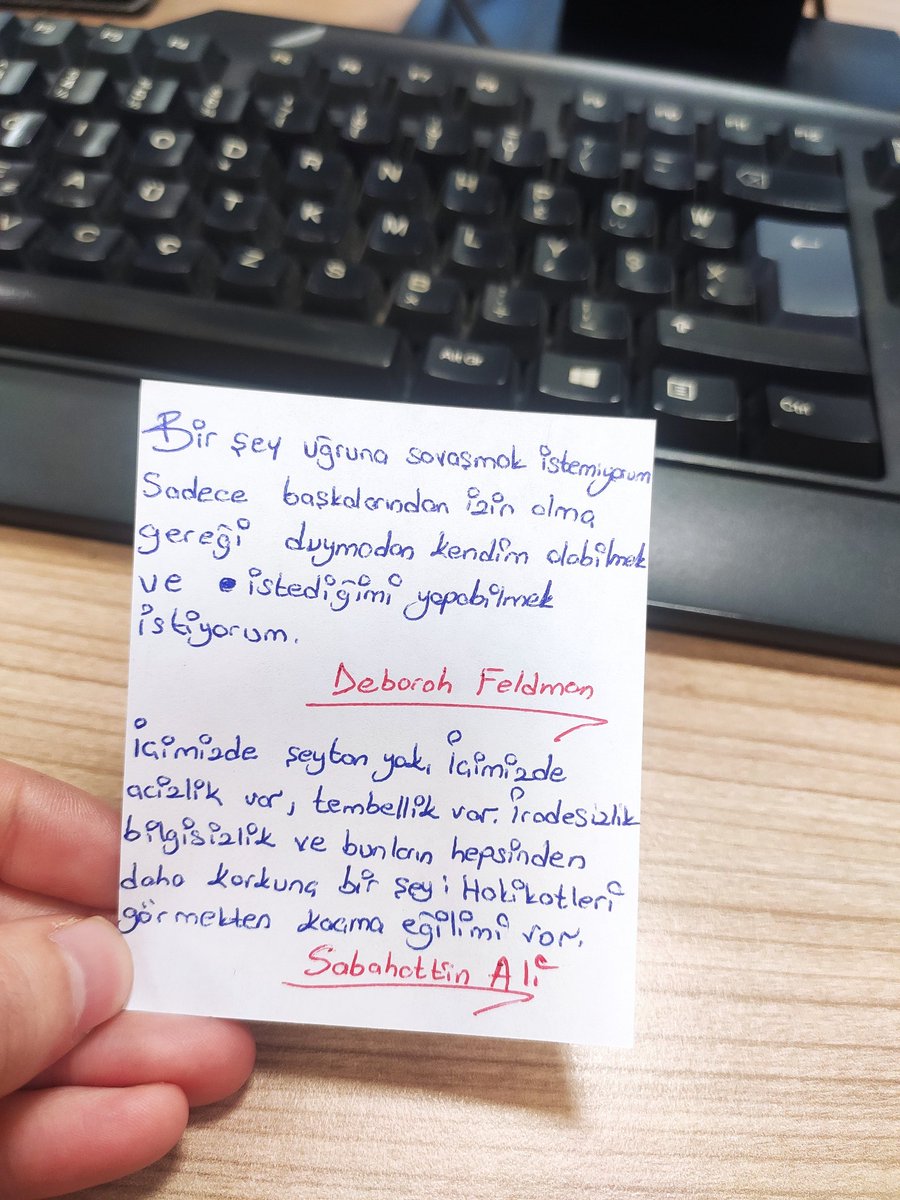 Bir şey uğruna savaşmak istemiyorum
Sadece başkalarından izin alma
gereği duymadan kendim olabilmek
ve istediğimi yapabilmek
istiyorum.
Deborah Feldman
İçimizde şeytan yok, İçimizde
acizlik var, tembellik var. İradesizlik
bilgisizlik ve bunların hepsinden
daha korkunç bir şey: Hakikatleri
görmekten kaçma eğilimi var.
Sabahattin Ali
G I O D R N H P Q W
A Ü T K M L Y Ş X
V C Ç Z S B
Alt Gr
Ctrl